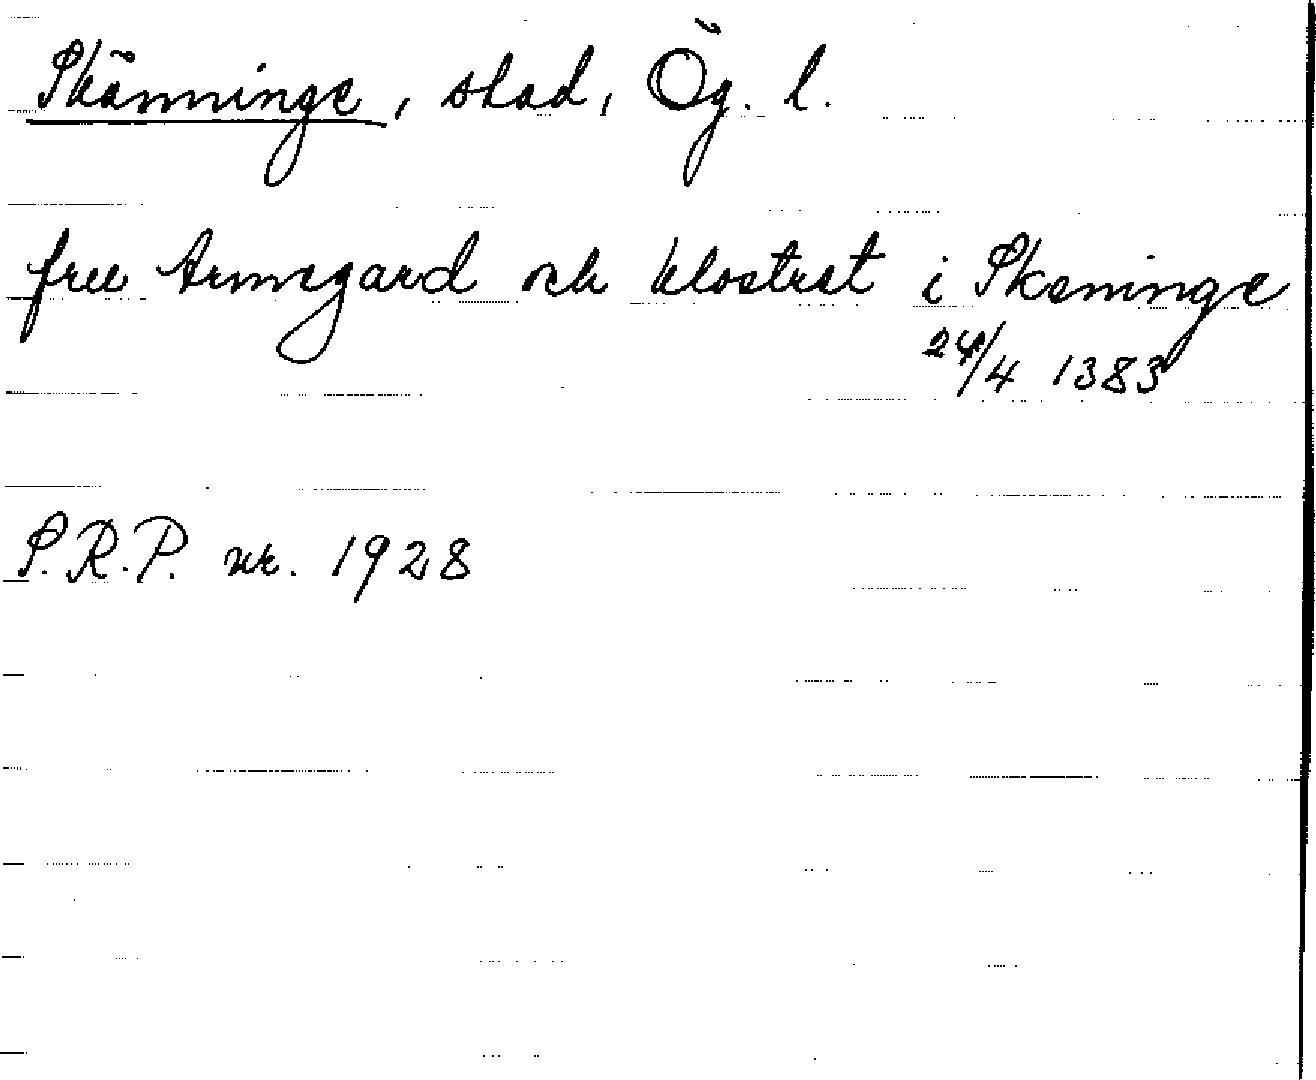 Skänninge, stad, Ög. l.
fru Armegard och klostret i Skeninge
24/4 1383
S.R.P. nr. 1928